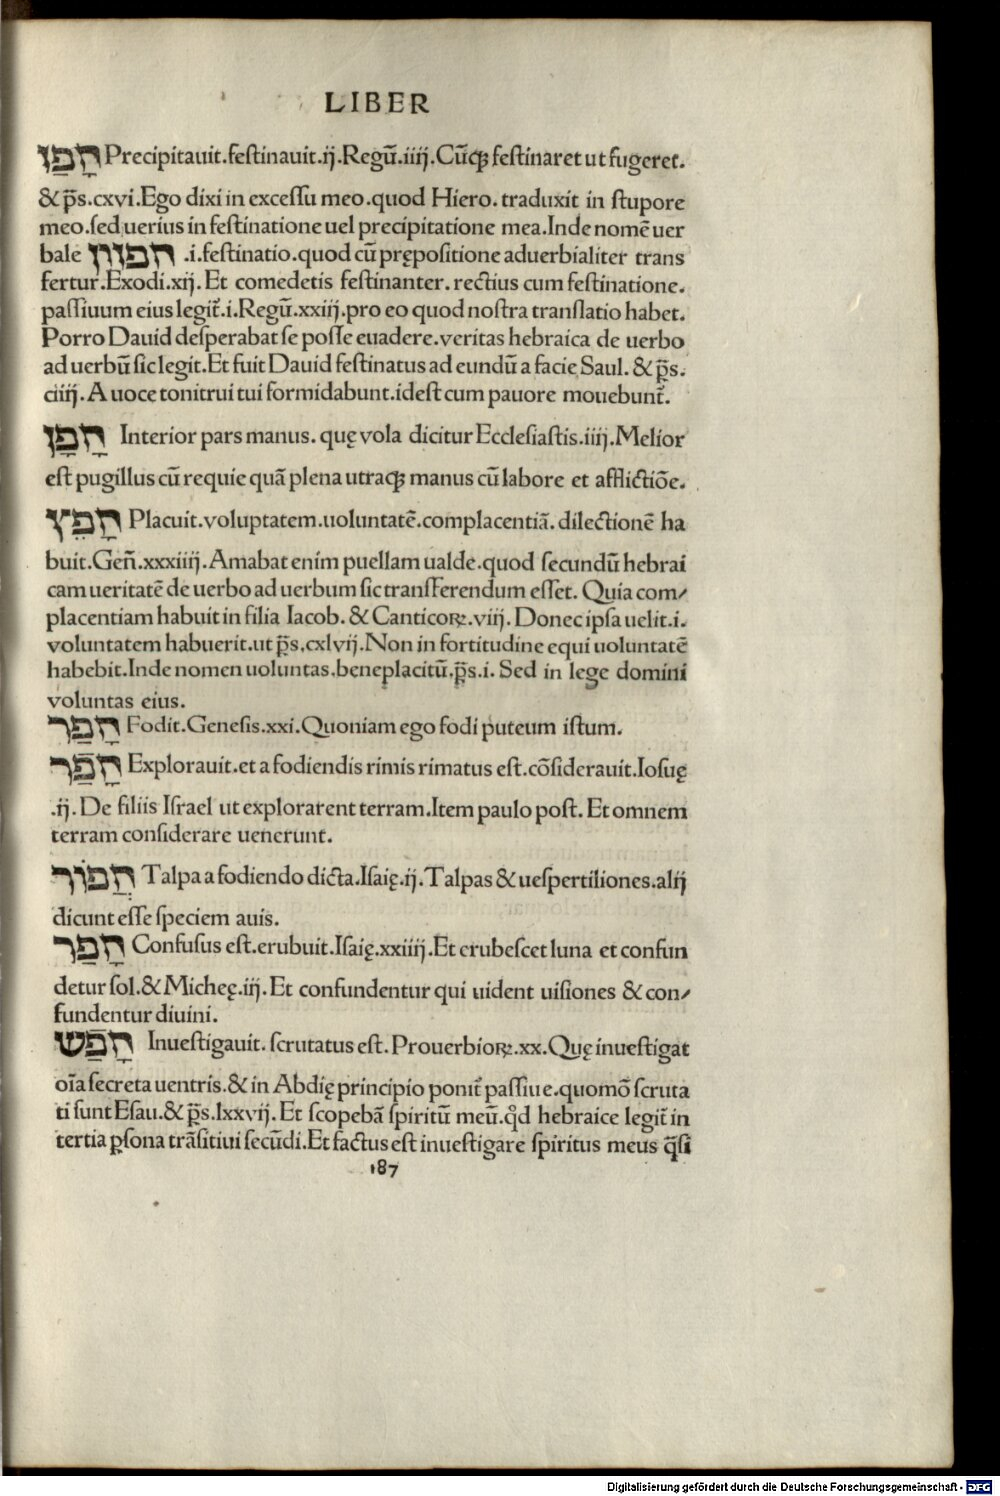 LIBER
חָפַז Precipitauit.festinauit.ij.Regū.iiij.Cūqꝫ festinaret ut fugeret.
& p̄s.cxvi.Ego dixi in excessu meo.quod Hiero. traduxit in stupore
meo.sed uerius in festinatione uel precipitatione mea.Inde nomē uer
bale חפזון .i.festinatio.quod cū prępositione aduerbialiter trans
fertur.Exodi.xij. Et comedetis festinanter. rectius cum festinatione.
passiuum eius legit̄.i.Regū.xxiij.pro eo quod nostra translatio habet.
Porro Dauid desperabat se posse euadere.veritas hebraica de uerbo
ad uerbū sic legit.Et fuit Dauid festinatus ad eundū a facie Saul. & p̄s.
ciij.A uoce tonitrui tui formidabunt.idest cum pauore mouebunt̄.
חָפַן Interior pars manus. quę vola dicitur Ecclesiastis.iiij.Melior
est pugillus cū requie quā plena utraqꝫ manus cū labore et afflictiōe.
חָפֵץ Placuit.voluptatem.uoluntatē.complacentiā. dilectionē ha
buit.Gen̄.xxxiiij.Amabat enim puellam ualde.quod secundū hebrai
cam ueritatē de uerbo ad uerbum sic transferendum esset. Quia com⸗
placentiam habuit in filia Iacob. & Canticoꝝ.viij. Donec ipsa uelit.i.
voluntatem habuerit.ut p̄s.cxlvij.Non in fortitudine equi uoluntatē
habebit.Inde nomen uoluntas.beneplacitū.p̄s.i. Sed in lege domini
voluntas eius.
חָפַר Fodit.Genesis.xxi.Quoniam ego fodi puteum istum.
חָפַר Explorauit.et a fodiendis rimis rimatus est.cōsiderauit.Iosuę
.ij.De filiis Israel ut explorarent terram.Item paulo post. Et omnem
terram considerare uenerunt.
חֲפֹור Talpa a fodiendo dicta.Isaię.ij.Talpas & uespertiliones.alij
dicunt esse speciem auis.
חָפַר Confusus est.erubuit.Isaię.xxiiij.Et erubescet luna et confun
detur sol.& Michęę.iij.Et confundentur qui uident uisiones & con⸗
fundentur diuini.
חָפַשׂ Inuestigauit. scrutatus est.Prouerbioꝝ.xx.Quę inuestigat
oīa secreta uentris.& in Abdię principio ponit̄ passiue.quomō scruta
ti sunt Esau.& p̄s.lxxvij.Et scopebā spiritū meū.qd̄ hebraice legit̄ in
tertia ꝑsona trāsitiui secūdi.Et factus est inuestigare spiritus meus q̄si
187
Digitalisierung gefördert durch die Deutsche Forschungsgemeinschaft - DFG